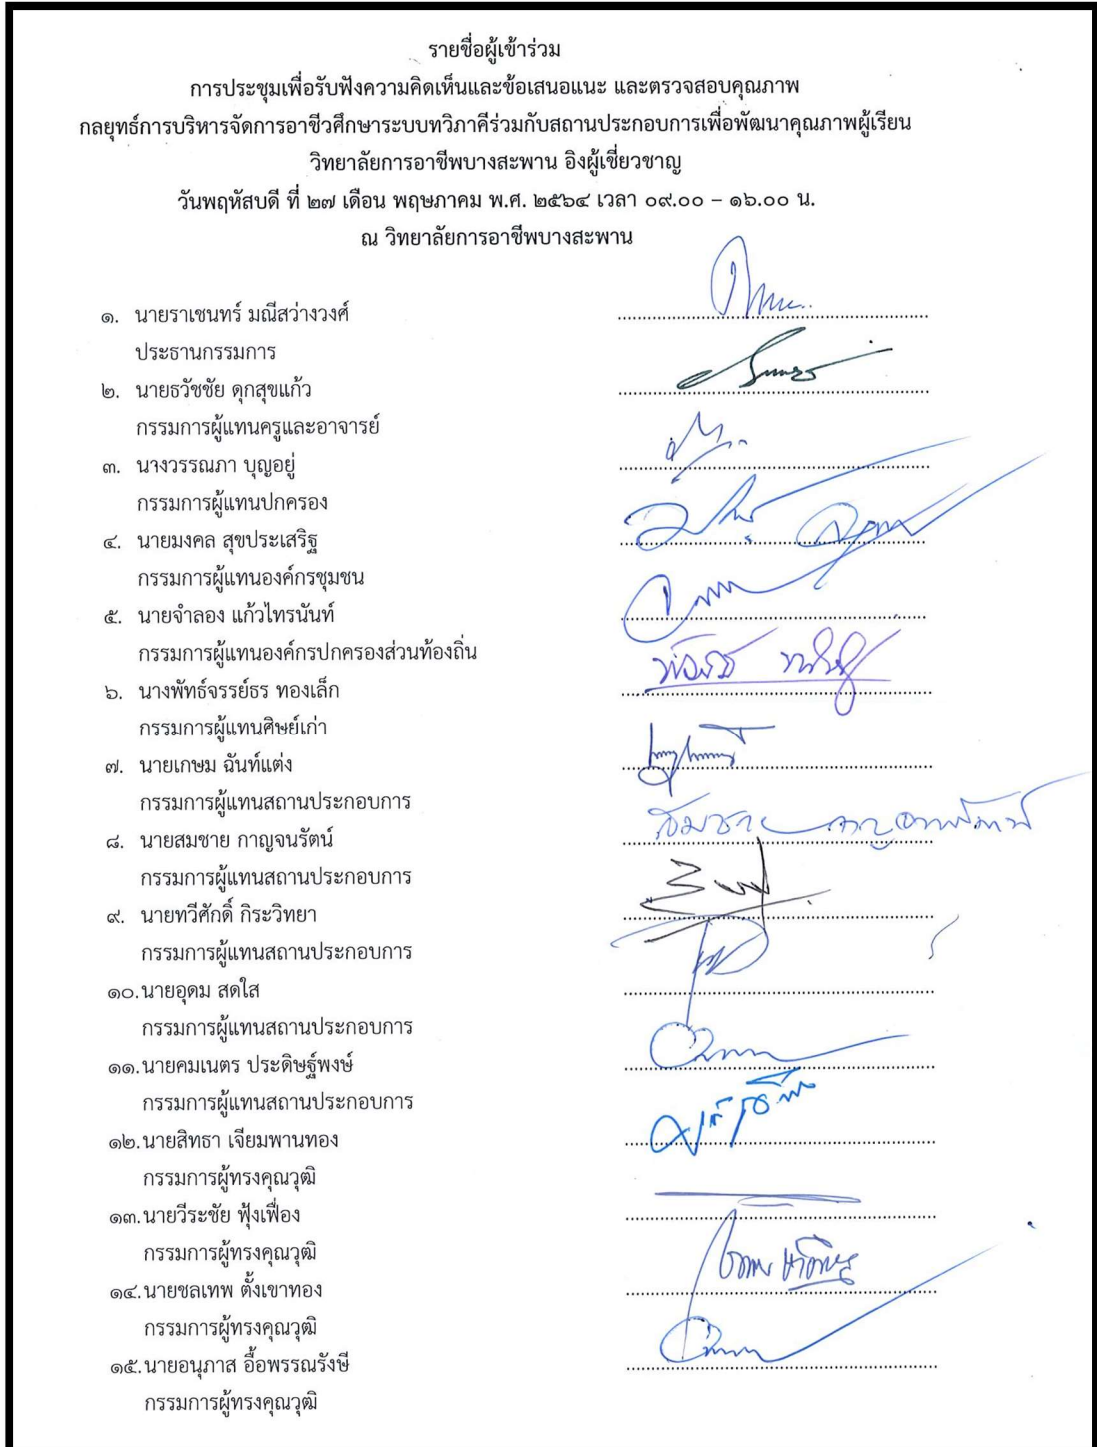 รายชื่อผู้เข้าร่วม
การประชุมเพื่อรับฟังความคิดเห็นและข้อเสนอแนะ และตรวจสอบคุณภาพ
กลยุทธ์การบริหารจัดการอาชีวศึกษาระบบทวิภาคีร่วมกับสถานประกอบการเพื่อพัฒนาคุณภาพผู้เรียน
วิทยาลัยการอาชีพบางสะพาน อิงผู้เชี่ยวชาญ
วันพฤหัสบดี ที่ ๒๗ เดือน พฤษภาคม พ.ศ. ๒๕๖๔ เวลา ๐๙.๐๐ – ๑๖.๐๐ น.
ณ วิทยาลัยการอาชีพบางสะพาน
๑. นายราเชนทร์ มณีสว่างวงศ์
ประธานกรรมการ
๒. นายธวัชชัย ดุกสุขแก้ว
กรรมการผู้แทนครูและอาจารย์
๓. นางวรรณภา บุญอยู่
กรรมการผู้แทนปกครอง
๔. นายมงคล สุขประเสริฐ
กรรมการผู้แทนองค์กรชุมชน
๕. นายจำลอง แก้วไทรนันท์
กรรมการผู้แทนองค์กรปกครองส่วนท้องถิ่น
๖. นางพัทธ์จรรย์ธร ทองเล็ก
กรรมการผู้แทนศิษย์เก่า
๗. นายเกษม ฉันท์แต่ง
กรรมการผู้แทนสถานประกอบการ
๘. นายสมชาย กาญจนรัตน์
กรรมการผู้แทนสถานประกอบการ
๙. นายทวีศักดิ์ กิระวิทยา
กรรมการผู้แทนสถานประกอบการ
๑๐.นายอุดม สดใส
กรรมการผู้แทนสถานประกอบการ
๑๑.นายคมเนตร ประดิษฐ์พงษ์
กรรมการผู้แทนสถานประกอบการ
๑๒.นายสิทธา เจียมพานทอง
กรรมการผู้ทรงคุณวุฒิ
๑๓.นายวีระชัย ฟุ้งเฟื่อง
กรรมการผู้ทรงคุณวุฒิ
๑๔.นายชลเทพ ตั้งเขาทอง
กรรมการผู้ทรงคุณวุฒิ
๑๕.นายอนุภาส อื้อพรรณรังษี
กรรมการผู้ทรงคุณวุฒิ